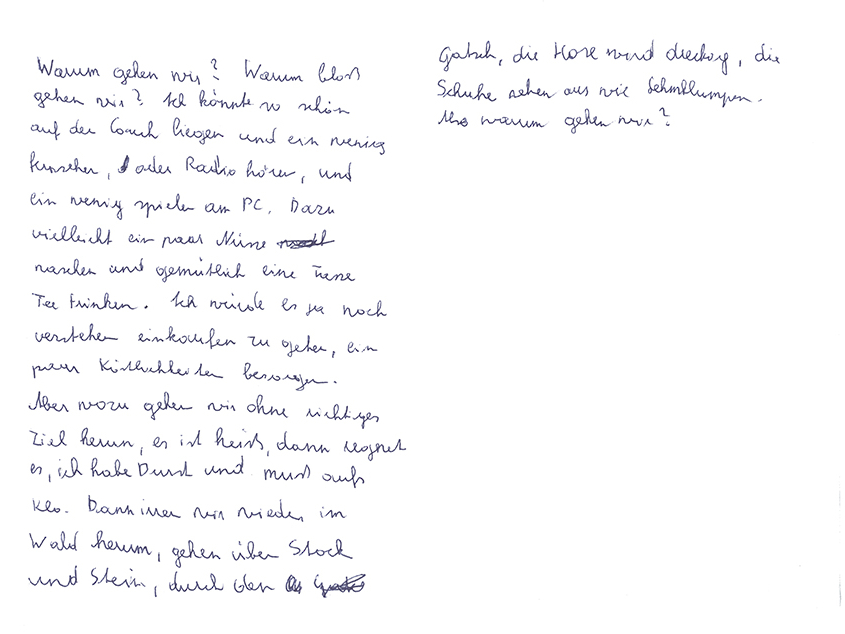 Warum gehen wir? Warum bloß
gehen wir? Ich könnte so schön
auf der Couch liegen und ein wenig
fernsehen, oder Radio hören, und
ein wenig spielen am PC. Dazu
vielleicht ein paar Nüsse
naschen und gemütlich eine Tasse
Tee trinken. Ich würde es ja noch
verstehen einkaufen zu gehen, ein
paar Köstlichkeiten besorgen.
Aber wozu gehen wir ohne richtiges
Ziel herum, es ist heiß, dann regnet
es, ich habe Durst und muß aufs
Klo. Dann irren wir wieder im
Wald herum, gehen über Stock
und Stein, durch den
Gatsch, die Hose wird dreckig, die
Schuhe sehen aus wie Lehmklumpen.
Also warum gehen wir?